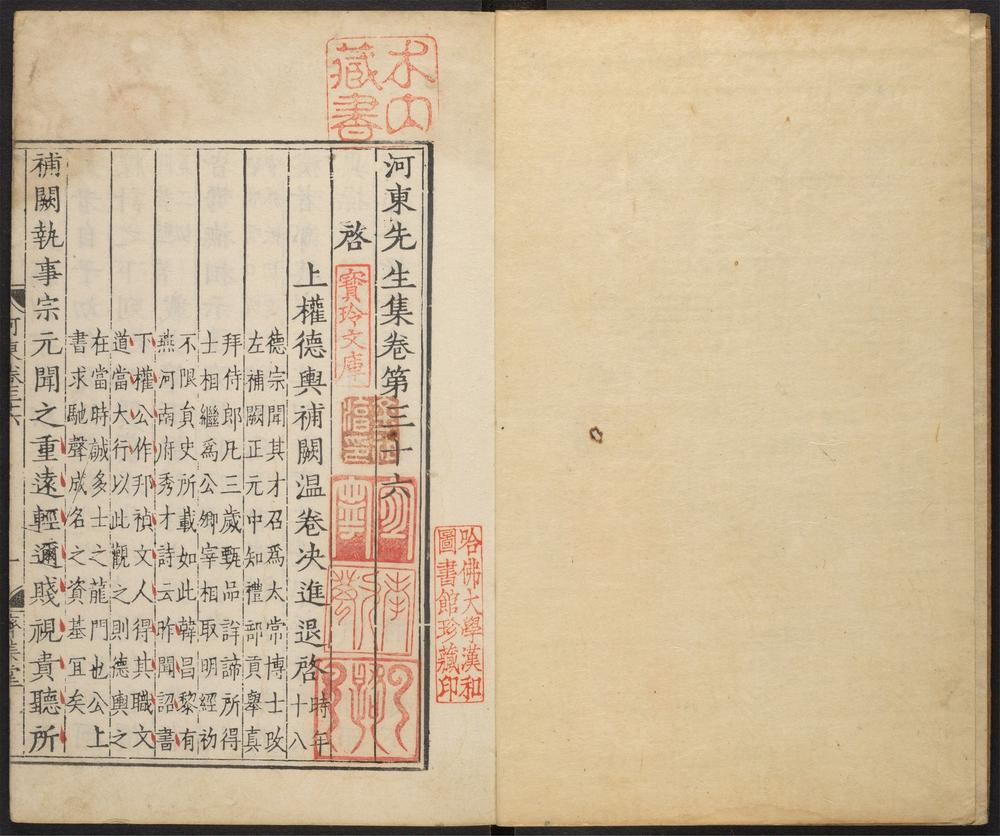 河東先生集卷第三十六
啓
上權德輿補闕温卷决進退啓時年十八
德宗聞其才召爲太常博士攻
左補闕正元中知禮部貢舉真
拜侍郎凡三歲甄品詳諦所得
士相繼爲公卿宰相取明經初
不限負史所載如此韓昌黎有
燕河南府秀才詩云昨聞詔書
下權公作邦禎文人得其職文
道當大行以此觀之則德輿之
在當時誠多士之龍門也公上
書求馳聲成名之資基冝矣
補闕執事宗元聞之重遠輕邇賤視貴聽所
河東卷三十六
一
濟美堂
木山
藏書
寶玲文庫
哈佛大學漢和
圖書館珍藏印